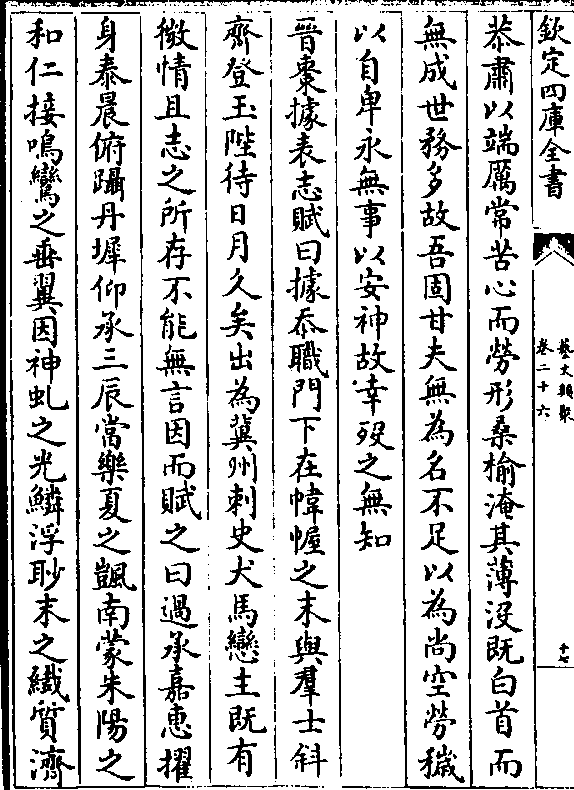 欽定四庫全書
藝文類聚
卷二十六
十七
恭肅以端厲常苦心而勞形桑榆淹其薄没既白首而
無成世務多故吾固甘夫無為名不足以為尚空勞穢
以自卑永無事以安神故幸殁之無知
晉棗據表志賦曰據忝職門下在幃幄之末與羣士斜
齊登玉陛待日月久矣出為冀州刺史犬馬戀主既有
微情且志之所存不能無言因而賦之曰過承嘉惠擢
身泰晨俯躡丹墀仰承三辰當樂夏之飀南蒙朱陽之
和仁接鳴鸞之垂翼因神虬之光鱗浮眇末之纎質濟